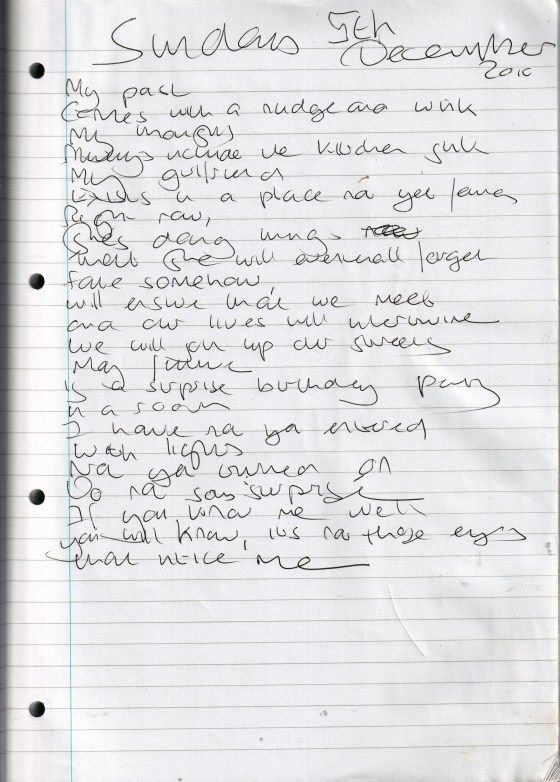 Sunday 5th
December
2010
My past
Comes with a nudge and wink
My thoughts
Always include the kitchen sink
My girlfriend
Exists in a place not yet found
Right now,
She's doing things
that she will eventually forget
Fate somehow,
will ensure that we meet
and our lives will intertwine
we will join up our streets
My future
Is a surprise birthday party
in a room
I have not yet entered
with lights
Not yet turned on
Do not say surprise
If you know me well
you will know, its not those eyes
that notice me